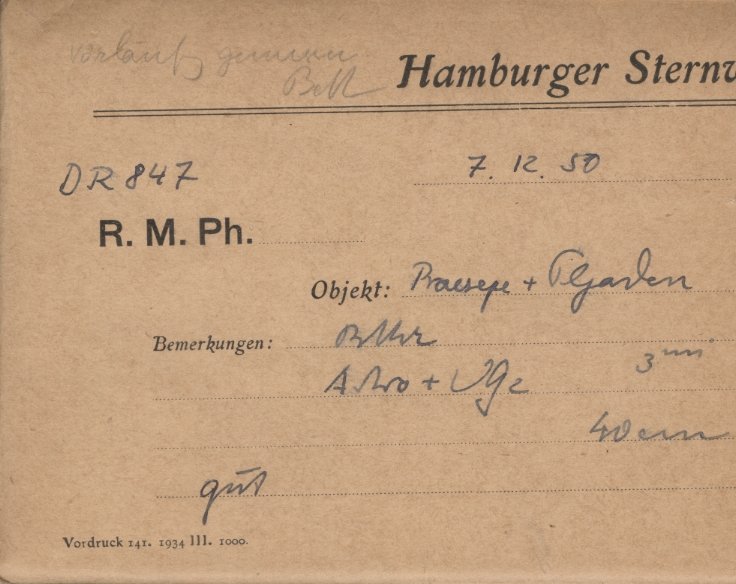 vorläufig
Hamburger Sternw
DR 847
7. 12. 50
R. M. Ph.
Objekt: Praesepe + Plejaden
Bemerkungen:
Astro +
3 mm
40 cm
gut
Vordruck 141. 1934 III. 1000.